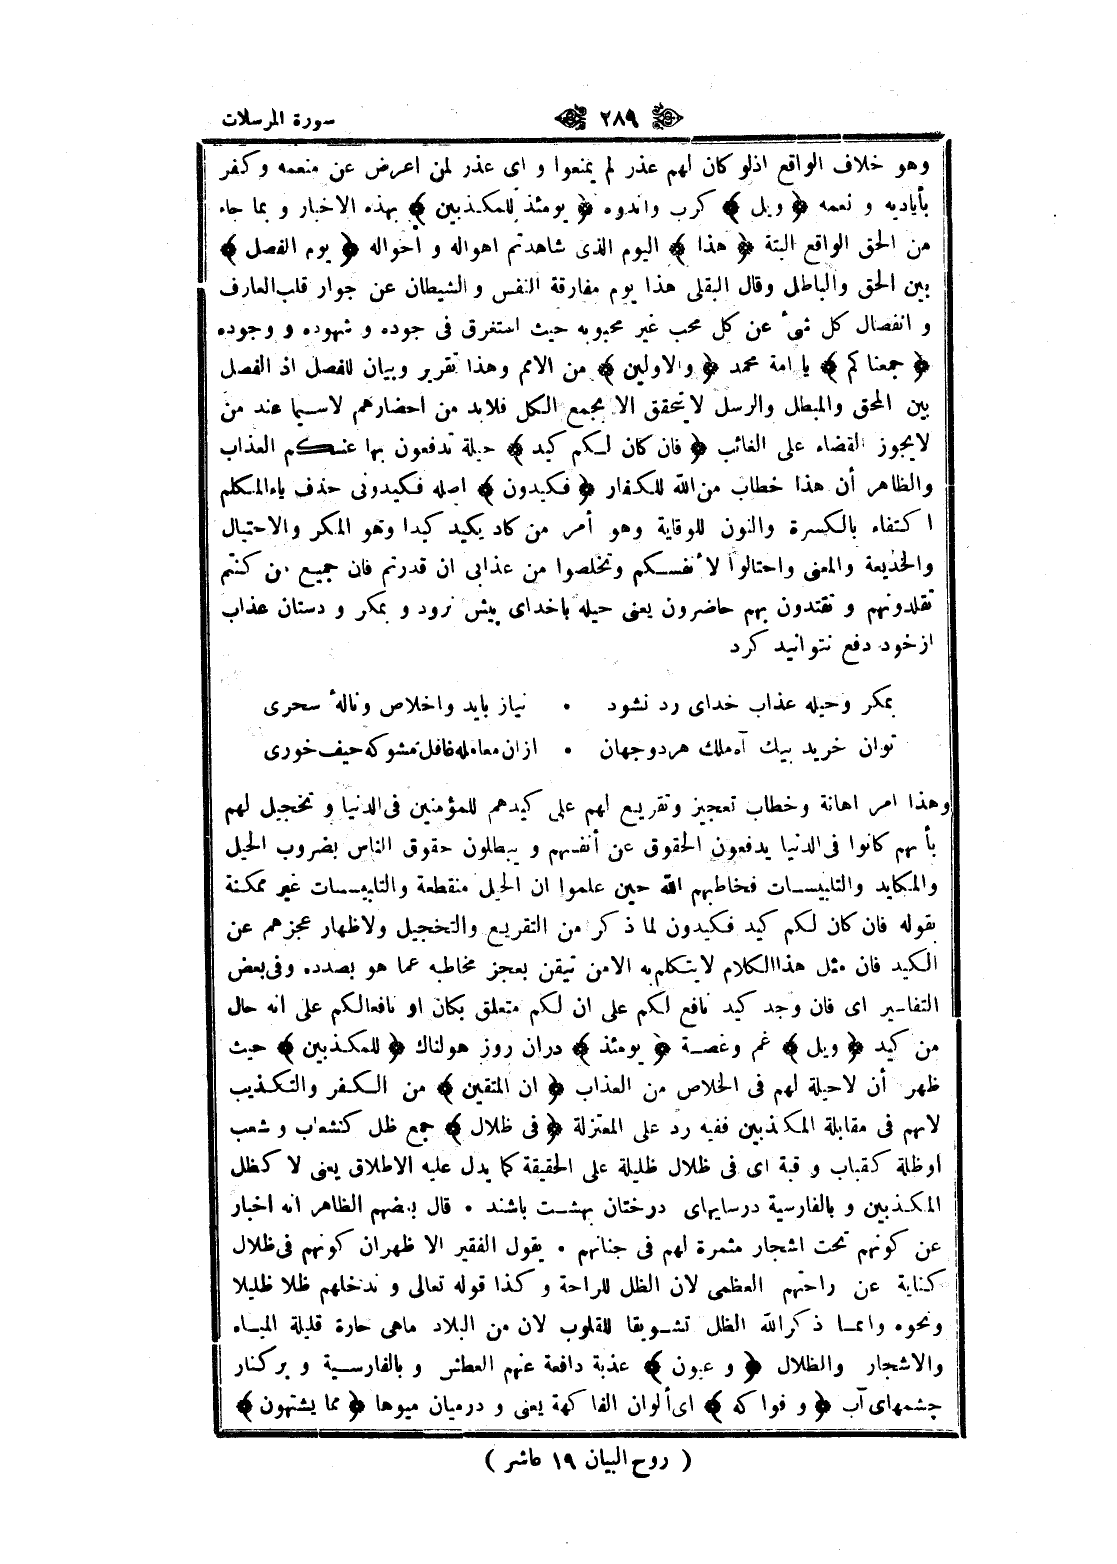 سورة المرسلات
٢٨٩
وهو خلاف الواقع اذلو كان لهم عذر لم يمنعوا و اى عذر لمن اعرض عن منعمه وكفر
بأياديه و نعمه ﴿ ويل ﴾ كرب واندوه ﴿ يومئذ للمكذبين ﴾ بهذه الاخبار و بما جاء
من الحق الواقع البتة ﴿ هذا ﴾ اليوم الذى شاهدتم اهواله و احواله ﴿ يوم الفصل ﴾
بين الحق والباطل وقال البقلى هذا يوم مفارقة النفس و الشيطان عن جوار قلب العارف
و انفصال كل شىء عن كل محب غير محبوبه حيث استغرق فى جوده و شهوده و وجوده
﴿ جمعناكم ﴾ يا امة محمد ﴿ والاولين ﴾ من الامم وهذا تقرير وبيان للفصل اذ الفصل
بين المحق والمبطل والرسل لا يتحقق الا بجمع الكل فلابد من احضارهم لاسيما عند من
لايجوز القضاء على الغائب ﴿ فان كان لكم كيد ﴾ حيلة تدفعون بها عنكم العذاب
والظاهر أن هذا خطاب من الله للكفار ﴿ فكيدون ﴾ اصله فكيدونى حذف ياءالمتكلم
اكتفاء بالكسرة والنون للوقاية وهو أمر من كاد يكيد كيدا وهو المكر والاحتيال
والخديعة والمعنى واحتالوا لأنفسكم وتخلصوا من عذابى ان قدرتم فان جميع من كنتم
تقلدونهم و تقتدون بهم حاضرون يعنى حيله باخداى پيش نرود و بمكر و دستان عذاب
ازخود دفع نتوانيد كرد
بمكر وحيله عذاب خداى رد نشود • نياز بايد واخلاص ونالۀ سحرى
توان خريد بيك آه ملك هردوجهان • ازان معامله غافل مشوكه حيف خورى
وهذا امر اهانة وخطاب تعجيز وتقريع لهم على كيدهم للمؤمنين فى الدنيا و تخجيل لهم
بأنهم كانوا فى الدنيا يدفعون الحقوق عن أنفسهم و يبطلون حقوق الناس بضروب الحيل
والمكايد والتلبيسات فخاطبهم الله حين علموا ان الحيل منقطعة والتلبيسات غير ممكنة
بقوله فان كان لكم كيد فكيدون لما ذكر من التقريع والتخجيل ولاظهار عجزهم عن
الكيد فان مثل هذا الكلام لايتكلم به الامن تيقن بعجز مخاطبه عما هو بصدده وفى بعض
التفاسير اى فان وجد كيد نافع لكم على ان لكم متعلق بكان او نافعالكم على انه حال
من كيد ﴿ ويل ﴾ غم وغصة ﴿ يومئذ ﴾ دران روز هولناك ﴿ للمكذبين ﴾ حيث
ظهر أن لاحيلة لهم فى الخلاص من العذاب ﴿ ان المتقين ﴾ من الكفر والتكذيب
لانهم فى مقابلة المكذبين ففيه رد على المعتزلة ﴿ فى ظلال ﴾ جمع ظل كشعاب و شعب
اوظلة كقباب و قبة اى فى ظلال ظليلة على الحقيقة كما يدل عليه الاطلاق يعنى لا كظل
المكذبين و بالفارسية درسايهاى درختان بهشت باشند • قال بعضهم الظاهر انه اخبار
عن كونهم تحت اشجار مثمرة لهم فى جناتهم • يقول الفقير الاظهران كونهم فى ظلال
كناية عن راحتهم العظمى لان الظل للراحة و كذا قوله تعالى و ندخلهم ظلا ظليلا
ونحوه وانما ذكرالله الظل تشويقا للقلوب لان من البلاد ماهى حارة قليلة المياه
والاشجار والظلال ﴿ و عيون ﴾ عذبة دافعة عنهم العطش و بالفارسية و بركنار
چشمهاى آب ﴿ و فواكه ﴾ اى ألوان الفاكهة يعنى و درميان ميوها ﴿ مما يشتهون ﴾
( روح البيان ١٩ عاشر )